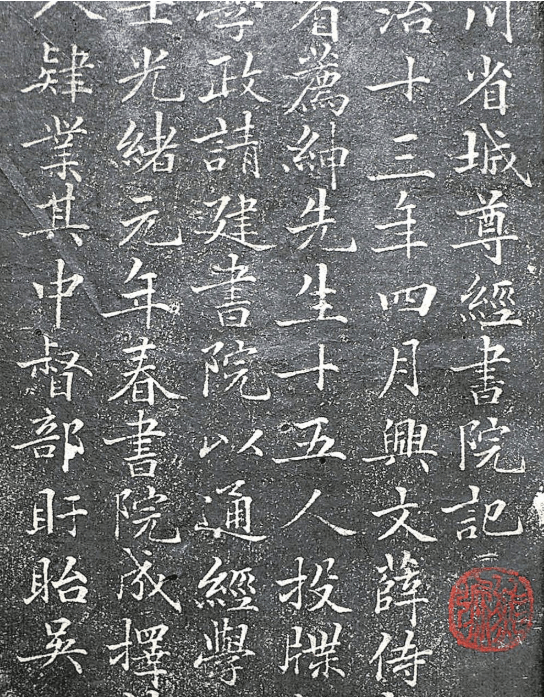 川省城尊經書院記
治十三年四月興文薛侍
省薦紳先生十五人投牒
學政請建書院以通經學
光緒元年春書院成擇
肄業其中督部盱眙吳